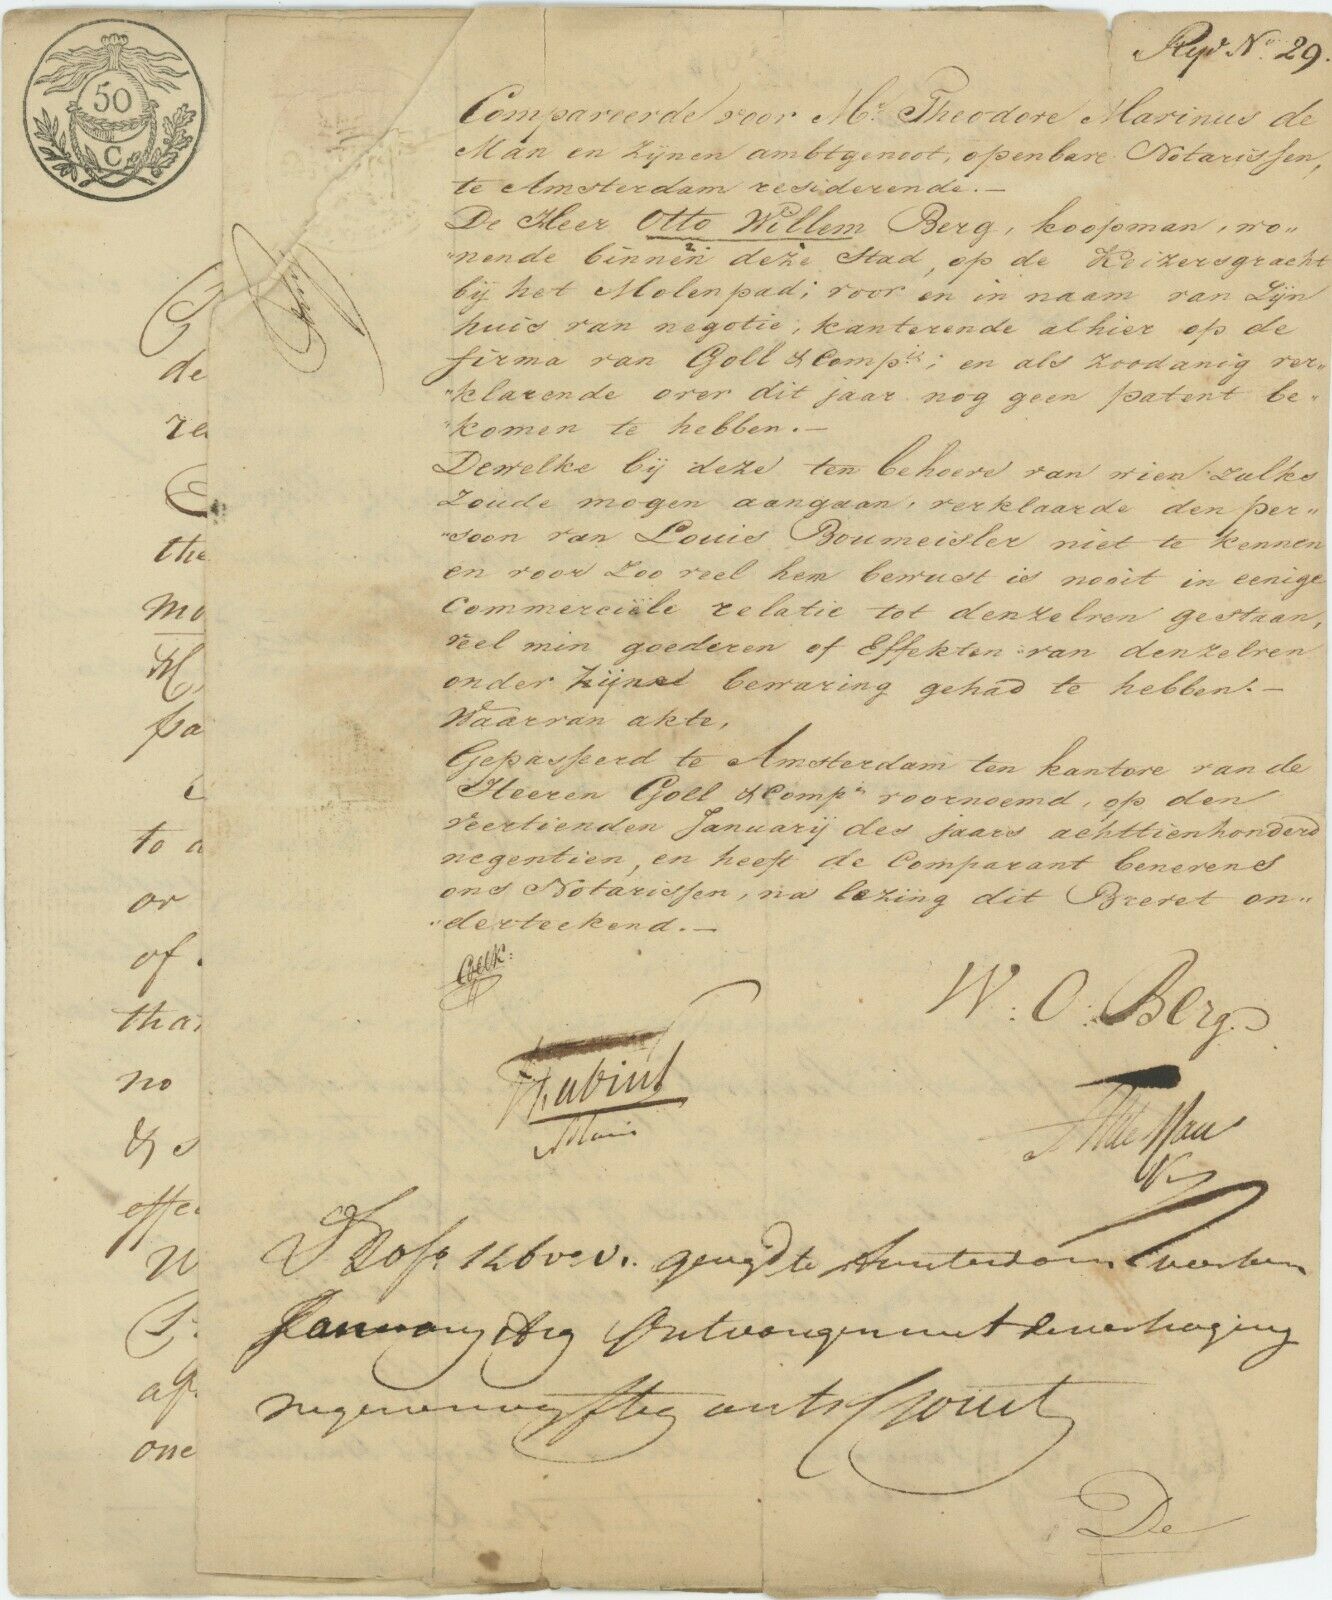 50
C
Rep. No. 29.
Compareerde voor Mr. Theodore Marinus de
Man en zijnen ambtgenoot, openbare Notarissen,
te Amsterdam resideerende.—
De Heer Otto Willem Berg, koopman, wo„
„nende binnen deze Stad, op de Keizersgracht
bij het Molenpad; voor en in naam van Zijn
huis van negotie, kanterende alhier op de
firma van Goll & Compie; en als zoodanig ver„
„klarende over dit jaar nog geen patent be„
„komen te hebben.—
Dewelke bij deze ten behoeve van wien zulks
zoude mogen aangaan, verklaarde den per„
„soon van Louis Boumeister niet te kennen
en voor zoo veel hem bewust is nooit in eenige
Commerciële relatie tot denzelven gestaan,
veel min goederen of Effekten van denzelven
onder zijne bewaring gehad te hebben.—
Waarvan akte,
Gepasseerd te Amsterdam ten kantore van de
Heeren Goll & Comp. voornoemd, op den
veertienden Januarij des jaars achttienhonderd
negentien, en heeft de Comparant benevens
ons Notarissen, na lezing dit Brevet on„
„derteekend.—
W: O: Berg
Amsterdam veertien
January Ontvangen met de verhoging
De
de
the
mo
pa
to a
or
of
tha
no
&
effe
one